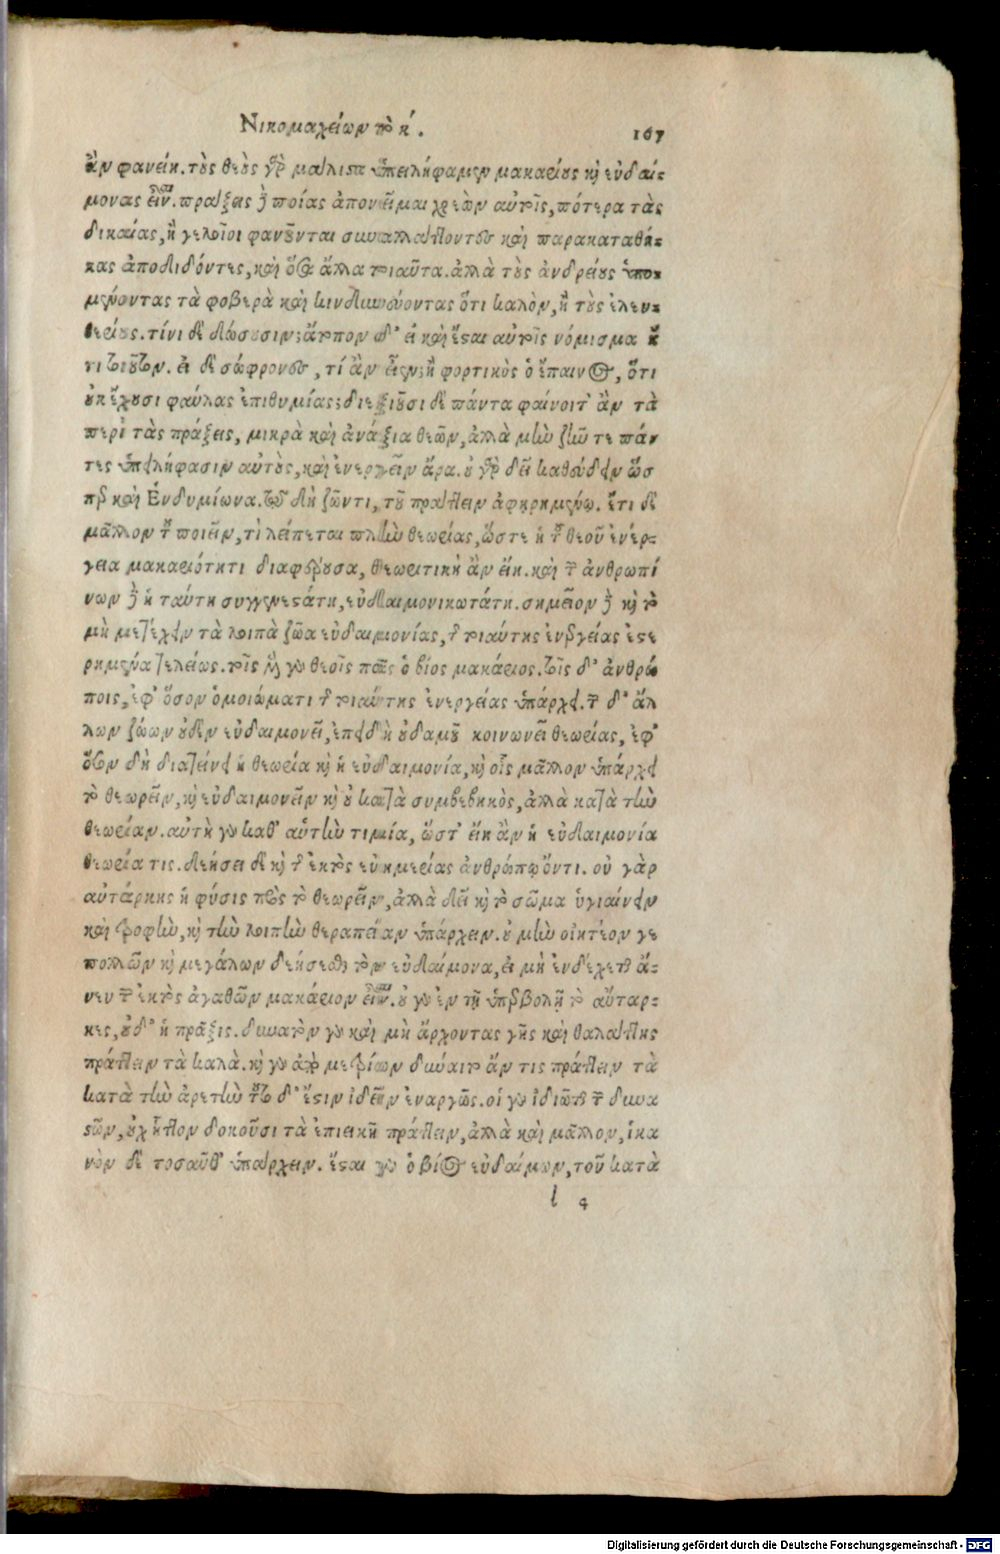 Νικομαχείων τὸ κ΄. 167
ἂν φανείη. τοὺς θεοὺς γὰρ μάλιστα ὑπειλήφαμεν μακαρίους καὶ εὐδαί-
μονας εἶναι. πράξεις δὲ ποίας ἀπονεῖμαι χρεὼν αὐτοῖς, πότερα τὰς
δικαίας, ἢ γελοῖοι φανοῦνται συναλλάττοντες καὶ παρακαταθή-
κας ἀποδιδόντες, καὶ ὅσα ἄλλα τοιαῦτα. ἀλλὰ τοὺς ἀνδρείους ὑπο-
μένοντας τὰ φοβερὰ καὶ κινδυνεύοντας ὅτι καλὸν, ἢ τοὺς ἐλευ-
θερίους. τίνι δὲ δώσουσιν; ἄτοπον δ' εἰ καὶ ἔσται αὐτοῖς νόμισμα ἤ
τι τοιοῦτον. εἰ δὲ σώφρονες, τί ἂν εἶεν; ἢ φορτικὸς ὁ ἔπαινος, ὅτι
οὐκ ἔχουσι φαύλας ἐπιθυμίας; διεξιοῦσι δὲ πάντα φαίνοιτ' ἂν τὰ
περὶ τὰς πράξεις, μικρὰ καὶ ἀνάξια θεῶν, ἀλλὰ μὴν ζῆν τε πάν
τες ὑπειλήφασιν αὐτοὺς, καὶ ἐνεργεῖν ἄρα. οὐ γὰρ δεῖ καθεύδειν ὥσ
περ καὶ Ἐνδυμίωνα. τῷ δὴ ζῶντι, τοῦ πράττειν ἀφῃρημένῳ. ἔτι δὲ
μᾶλλον τοῦ ποιεῖν, τὶ λείπεται πλὴν θεωρίας, ὥστε ἡ τοῦ θεοῦ ἐνέρ-
γεια μακαριότητι διαφέρουσα, θεωρητικὴ ἂν εἴη. καὶ τῶν ἀνθρωπί
νων δὲ ἡ ταύτῃ συγγενεστάτη, εὐδαιμονικωτάτη. σημεῖον δὲ καὶ τὸ
μὴ μετέχειν τὰ λοιπὰ ζῶα εὐδαιμονίας, τῆς τοιαύτης ἐνεργείας ἐστε
ρημένα τελείως. τοῖς μὲν γὰρ θεοῖς πᾶς ὁ βίος μακάριος. τοῖς δ' ἀνθρώ
ποις, ἐφ' ὅσον ὁμοιώματι τῆς τοιαύτης ἐνεργείας ὑπάρχει. τῶν δ' ἄλ
λων ζώων οὐδὲν εὐδαιμονεῖ, ἐπειδὴ οὐδαμοῦ κοινωνεῖ θεωρίας, ἐφ'
ὅσον δὴ διατείνει ἡ θεωρία καὶ ἡ εὐδαιμονία, καὶ οἷς μᾶλλον ὑπάρχει
τὸ θεωρεῖν, καὶ εὐδαιμονεῖν καὶ οὐ κατὰ συμβεβηκὸς, ἀλλὰ κατὰ τὴν
θεωρίαν. αὐτὴ γὰρ καθ' αὑτὴν τιμία, ὥστ' εἴη ἂν ἡ εὐδαιμονία
θεωρία τις. δεήσει δὲ καὶ τῆς ἐκτὸς εὐημερίας ἀνθρώπῳ ὄντι. οὐ γὰρ
αὐτάρκης ἡ φύσις πρὸς τὸ θεωρεῖν, ἀλλὰ δεῖ καὶ τὸ σῶμα ὑγιαίνειν
καὶ τροφὴν, καὶ τὴν λοιπὴν θεραπείαν ὑπάρχειν. οὐ μὴν οἰητέον γε
πολλῶν καὶ μεγάλων δεήσεσθαι τὸν εὐδαίμονα, εἰ μὴ ἐνδέχεται ἄ-
νευ τῶν ἐκτὸς ἀγαθῶν μακάριον εἶναι. οὐ γὰρ ἐν τῇ ὑπερβολῇ τὸ αὔταρ-
κες, οὐδ' ἡ πρᾶξις. δυνατὸν γὰρ καὶ μὴ ἄρχοντας γῆς καὶ θαλάττης
πράττειν τὰ καλὰ. καὶ γὰρ ἀπὸ μετρίων δύναιτο ἄν τις πράττειν τὰ
κατὰ τὴν ἀρετὴν τοῦτο δ' ἔστιν ἰδεῖν ἐναργῶς. οἱ γὰρ ἰδιῶται τῶν δυνα
στῶν, οὐχ ἧττον δοκοῦσι τὰ ἐπιεικῆ πράττειν, ἀλλὰ καὶ μᾶλλον, ἱκα
νὸν δὲ τοσαῦθ' ὑπάρχειν. ἔσται γὰρ ὁ βίος εὐδαίμων, τοῦ κατὰ
l 4
Digitalisierung gefördert durch die Deutsche Forschungsgemeinschaft - DFG